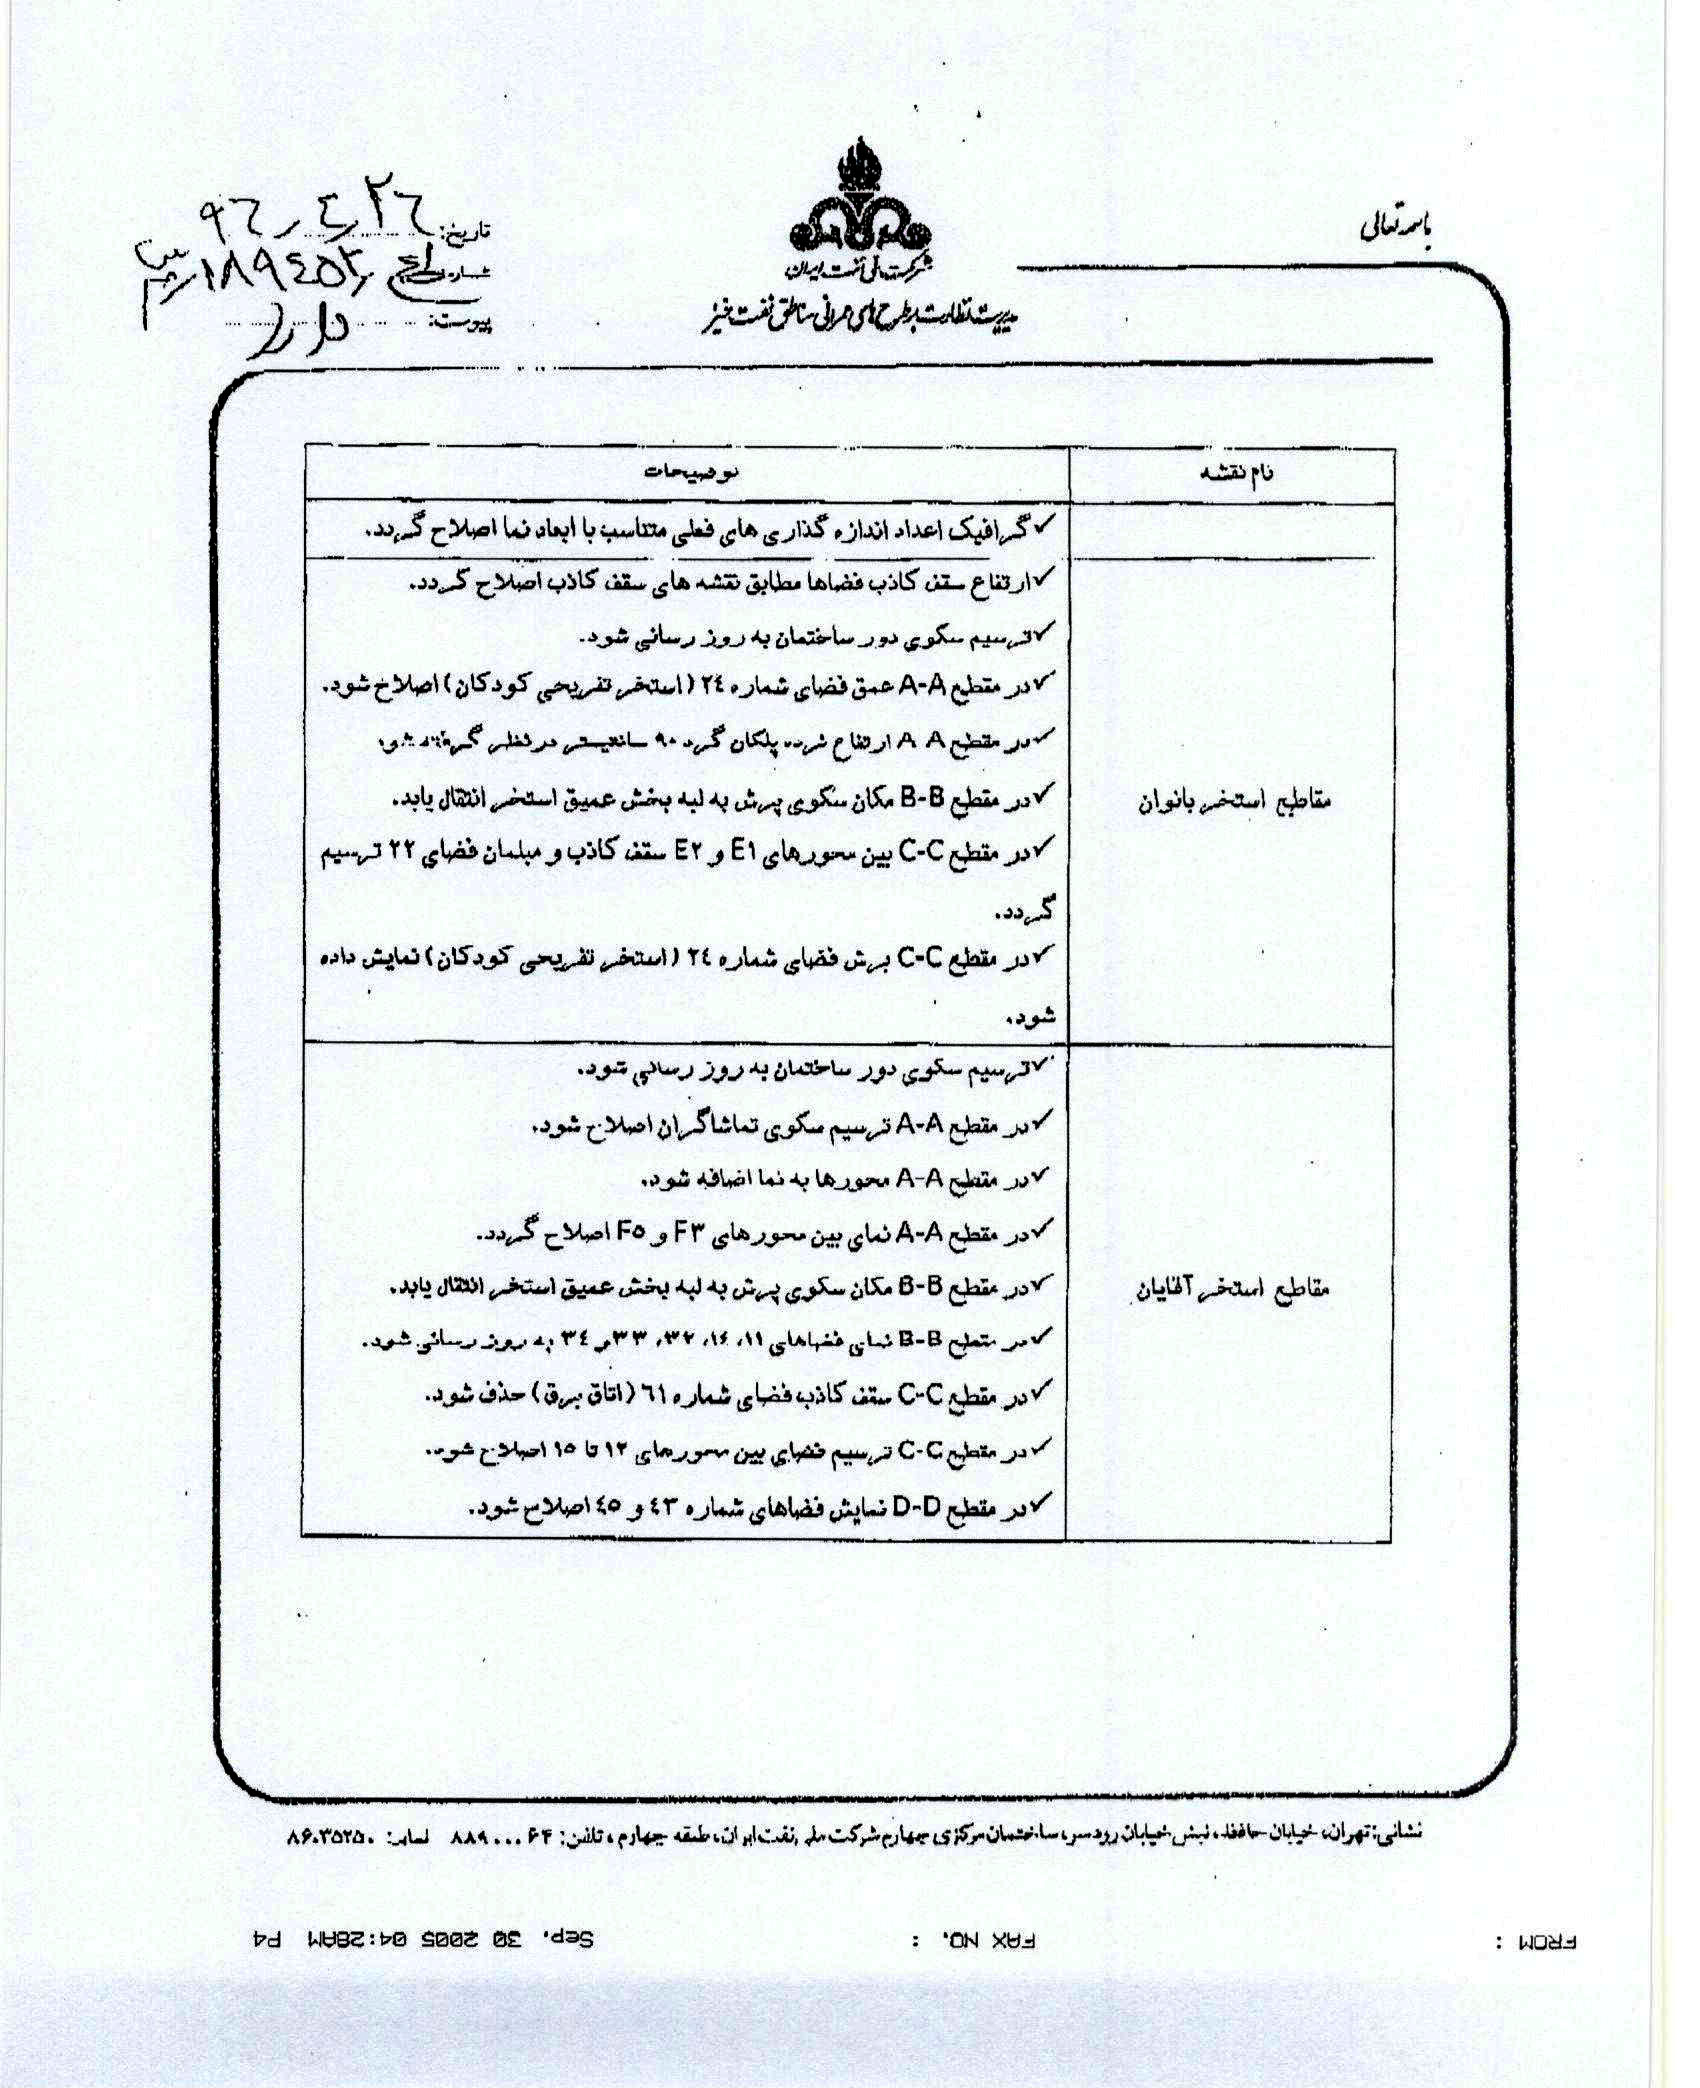 باسمه تعالی
شرکت ملی نفت ایران
مدیریت نظارت بر طرح های عمرانی مناطق نفت خیز
تاریخ: ۹۶٫۴٫۲۶
شماره:
پیوست: دارد
نام نقشه
توضیحات
✓گرافیک اعداد اندازه گذاری های فعلی متناسب با ابعاد نما اصلاح گردد.
مقاطع استخر بانوان
✓ارتفاع سقف کاذب فضاها مطابق نقشه های سقف کاذب اصلاح گردد.
✓ترسیم سکوی دور ساختمان به روز رسانی شود.
✓در مقطع A-A عمق فضای شماره ۲٤ (استخر تفریحی کودکان) اصلاح شود.
✓در مقطع A A ارتفاع نرده پلکان گرد ۹۰ سانتیمتر در نظر گرفته شود
✓در مقطع B-B مکان سکوی پرش به لبه بخش عمیق استخر انتقال یابد.
✓در مقطع C-C بین محورهای E۱ و E۲ سقف کاذب و مبلمان فضای ۲۲ ترسیم
گردد.
✓در مقطع C-C برش فضای شماره ۲٤ (استخر تفریحی کودکان) نمایش داده
شود.
مقاطع استخر آقایان
✓ترسیم سکوی دور ساختمان به روز رسانی شود.
✓در مقطع A-A ترسیم سکوی تماشاگران اصلاح شود.
✓در مقطع A-A محورها به نما اضافه شود.
✓در مقطع A-A نمای بین محورهای F۳ و F۵ اصلاح گردد.
✓در مقطع B-B مکان سکوی پرش به لبه بخش عمیق استخر انتقال یابد.
✓در مقطع B-B نمای فضاهای ۱۱، ۱۶، ۳۲، ۳۳ و ۳٤ به روز رسانی شود.
✓در مقطع C-C سقف کاذب فضای شماره ٦۱ (اتاق برق) حذف شود.
✓در مقطع C-C ترسیم فضای بین محورهای ۱۲ تا ۱۵ اصلاح شود.
✓در مقطع D-D نمایش فضاهای شماره ٤۳ و ٤۵ اصلاح شود.
نشانی: تهران، خیابان حافظ، نبش خیابان رودسر، ساختمان مرکزی چهارم شرکت ملی نفت ایران، طبقه چهارم، تلفن: ۸۸۹۰۰۰۶۴ نمابر: ۸۶۰۳۵۲۵۰
FROM :
FAX NO. :
Sep. 30 2005 04:28AM P4